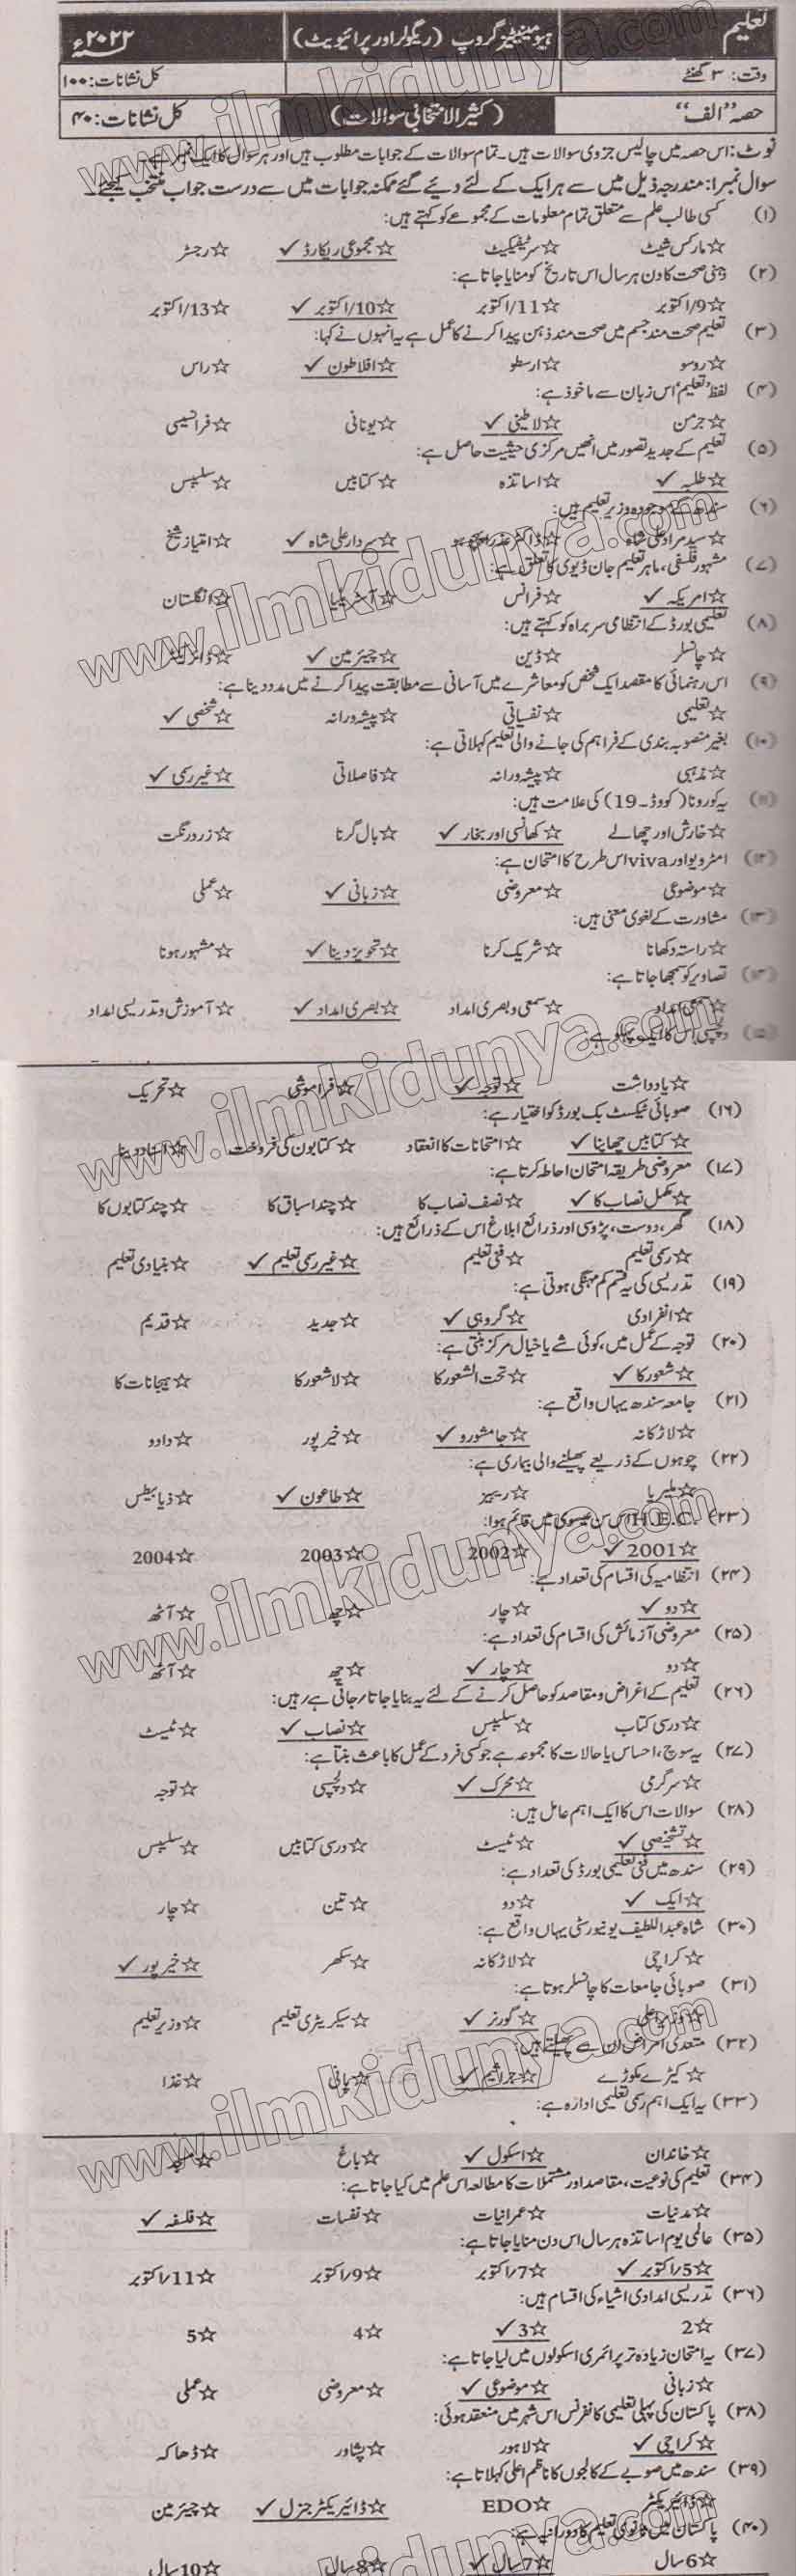 تعلیم
ہیومینیٹیز گروپ (ریگولر اور پرائیویٹ)
۲۰۲۲ء
وقت: ۳ گھنٹے
کل نشانات: ۱۰۰
حصہ "الف"
(کثیر الانتخابی سوالات)
کل نشانات: ۴۰
نوٹ: اس حصہ میں چالیس جزوی سوالات ہیں۔ تمام سوالات کے جوابات مطلوب ہیں اور ہر سوال کا ایک نمبر ہے۔
سوال نمبر۱: مندرجہ ذیل میں سے ہر ایک کے لئے دیئے گئے ممکنہ جوابات میں سے درست جواب منتخب کیجئے۔
(۱) کسی طالب علم سے متعلق تمام معلومات کے مجموعے کو کہتے ہیں:
☆ مارکس شیٹ ☆ سرٹیفکیٹ ☆ مجموعی ریکارڈ ✓ ☆ رجسٹر
(۲) ذہنی صحت کا دن ہر سال اس تاریخ کو منایا جاتا ہے:
☆ 9/اکتوبر ☆ 11/اکتوبر ☆ 10/اکتوبر ✓ ☆ 13/اکتوبر
(۳) تعلیم صحت مند جسم میں صحت مند ذہن پیدا کرنے کا عمل ہے یہ انہوں نے کہا:
☆ روسو ☆ ارسطو ☆ افلاطون ✓ ☆ راس
(۴) لفظ 'تعلیم' اس زبان سے ماخوذ ہے:
☆ جرمن ☆ لاطینی ✓ ☆ یونانی ☆ فرانسیسی
(۵) تعلیم کے جدید تصور میں انھیں مرکزی حیثیت حاصل ہے:
☆ طلبہ ✓ ☆ اساتذہ ☆ کتابیں ☆ سلیبس
(۶) سندھ کے موجودہ وزیر تعلیم ہیں:
☆ سید مراد علی شاہ ☆ ڈاکٹر عذرا پیچوہو ☆ سردار علی شاہ ✓ ☆ امتیاز شیخ
(۷) مشہور فلسفی، ماہر تعلیم جان ڈیوی کا تعلق ہے:
☆ امریکہ ✓ ☆ فرانس ☆ آسٹریلیا ☆ انگلستان
(۸) تعلیمی بورڈ کے انتظامی سربراہ کو کہتے ہیں:
☆ چانسلر ☆ ڈین ☆ چیئرمین ✓ ☆ ڈائریکٹر
(۹) اس رہنمائی کا مقصد ایک شخص کو معاشرے میں آسانی سے مطابقت پیدا کرنے میں مدد دینا ہے:
☆ تعلیمی ☆ نفسیاتی ☆ پیشہ ورانہ ☆ شخصی ✓
(۱۰) بغیر منصوبہ بندی کے فراہم کی جانے والی تعلیم کہلاتی ہے:
☆ مذہبی ☆ پیشہ ورانہ ☆ فاصلاتی ☆ غیر رسمی ✓
(۱۱) یہ کورونا (کووڈ۔19) کی علامت ہیں:
☆ خارش اور چھالے ☆ کھانسی اور بخار ✓ ☆ بال گرنا ☆ زرد رنگت
(۱۲) انٹرویو اور viva اس طرح کا امتحان ہے:
☆ موضوعی ☆ معروضی ☆ زبانی ✓ ☆ عملی
(۱۳) مشاورت کے لغوی معنی ہیں:
☆ راستہ دکھانا ☆ شریک کرنا ☆ تجویز دینا ✓ ☆ مشہور ہونا
(۱۴) تصاویر کو سمجھا جاتا ہے:
☆ سمعی امداد ☆ سمعی و بصری امداد ☆ بصری امداد ✓ ☆ آموزش و تدریسی امداد
(۱۵) دلچسپی اس کا ایک پہلو ہے:
☆ یادداشت ☆ توجہ ✓ ☆ فراموشی ☆ تحریک
(۱۶) صوبائی ٹیکسٹ بک بورڈ کو اختیار ہے:
☆ کتابیں چھاپنا ✓ ☆ امتحانات کا انعقاد ☆ کتابوں کی فروخت ☆ اسناد دینا
(۱۷) معروضی طریقہ امتحان احاطہ کرتا ہے:
☆ مکمل نصاب کا ✓ ☆ نصف نصاب کا ☆ چند اسباق کا ☆ چند کتابوں کا
(۱۸) گھر، دوست، پڑوسی اور ذرائع ابلاغ اس کے ذرائع ہیں:
☆ رسمی تعلیم ☆ فنی تعلیم ☆ غیر رسمی تعلیم ✓ ☆ بنیادی تعلیم
(۱۹) تدریس کی یہ قسم کم مہنگی ہوتی ہے:
☆ انفرادی ☆ گروہی ✓ ☆ جدید ☆ قدیم
(۲۰) توجہ کے عمل میں، کوئی شے یا خیال مرکز بنتی ہے:
☆ شعور کا ✓ ☆ تحت الشعور کا ☆ لاشعور کا ☆ ہیجانات کا
(۲۱) جامعہ سندھ یہاں واقع ہے:
☆ لاڑکانہ ☆ جامشورو ✓ ☆ خیرپور ☆ دادو
(۲۲) چوہوں کے ذریعے پھیلنے والی بیماری ہے:
☆ ملیریا ☆ ریبیز ☆ طاعون ✓ ☆ ذیابیطس
(۲۳) H.E.C. اس سن عیسوی میں قائم ہوا:
☆ 2001 ✓ ☆ 2002 ☆ 2003 ☆ 2004
(۲۴) انتظامیہ کی اقسام کی تعداد ہے:
☆ دو ✓ ☆ چار ☆ چھ ☆ آٹھ
(۲۵) معروضی آزمائش کی اقسام کی تعداد ہے:
☆ دو ☆ چار ✓ ☆ چھ ☆ آٹھ
(۲۶) تعلیم کے اغراض و مقاصد کو حاصل کرنے کے لئے یہ بنایا جاتا/جاتی ہے/ہیں:
☆ درسی کتاب ☆ سلیبس ☆ نصاب ✓ ☆ ٹیسٹ
(۲۷) یہ سوچ، احساس یا حالات کا مجموعہ ہے جو کسی فرد کے عمل کا باعث بنتا ہے:
☆ سرگرمی ☆ محرک ✓ ☆ دلچسپی ☆ توجہ
(۲۸) سوالات اس کا ایک اہم عامل ہیں:
☆ تشخیصی ✓ ☆ ٹیسٹ ☆ درسی کتابیں ☆ سلیبس
(۲۹) سندھ میں فنی تعلیمی بورڈ کی تعداد ہے:
☆ ایک ✓ ☆ دو ☆ تین ☆ چار
(۳۰) شاہ عبداللطیف یونیورسٹی یہاں واقع ہے:
☆ کراچی ☆ لاڑکانہ ☆ سکھر ☆ خیرپور ✓
(۳۱) صوبائی جامعات کا چانسلر ہوتا ہے:
☆ وزیر اعلی ☆ گورنر ✓ ☆ سیکریٹری تعلیم ☆ وزیر تعلیم
(۳۲) متعدی امراض ان سے پھیلتے ہیں:
☆ کیڑے مکوڑے ☆ جراثیم ✓ ☆ پانی ☆ غذا
(۳۳) یہ ایک اہم رسمی تعلیمی ادارہ ہے:
☆ خاندان ☆ اسکول ✓ ☆ باغ ☆ مسجد
(۳۴) تعلیم کی نوعیت، مقاصد اور مشتملات کا مطالعہ اس علم میں کیا جاتا ہے:
☆ مدنیات ☆ عمرانیات ☆ نفسیات ☆ فلسفہ ✓
(۳۵) عالمی یوم اساتذہ ہر سال اس دن منایا جاتا ہے:
☆ 5/اکتوبر ✓ ☆ 7/اکتوبر ☆ 9/اکتوبر ☆ 11/اکتوبر
(۳۶) تدریسی امدادی اشیاء کی اقسام ہیں:
☆ 2 ☆ 3 ✓ ☆ 4 ☆ 5
(۳۷) یہ امتحان زیادہ تر پرائمری اسکولوں میں لیا جاتا ہے:
☆ زبانی ☆ موضوعی ✓ ☆ معروضی ☆ عملی
(۳۸) پاکستان کی پہلی تعلیمی کانفرنس اس شہر میں منعقد ہوئی:
☆ کراچی ✓ ☆ لاہور ☆ پشاور ☆ ڈھاکہ
(۳۹) سندھ میں صوبے کے کالجوں کا ناظم اعلیٰ کہلاتا ہے:
☆ ڈائریکٹر ☆ EDO ☆ ڈائریکٹر جنرل ✓ ☆ چیئرمین
(۴۰) پاکستان میں ثانوی تعلیم کا دورانیہ ہے:
☆ 6 سال ☆ 7 سال ✓ ☆ 8 سال ☆ 10 سال
www.ilmkidunya.com
www.ilmkidunya.com
www.ilmkidunya.com
www.ilmkidunya.com
www.ilmkidunya.com
www.ilmkidunya.com